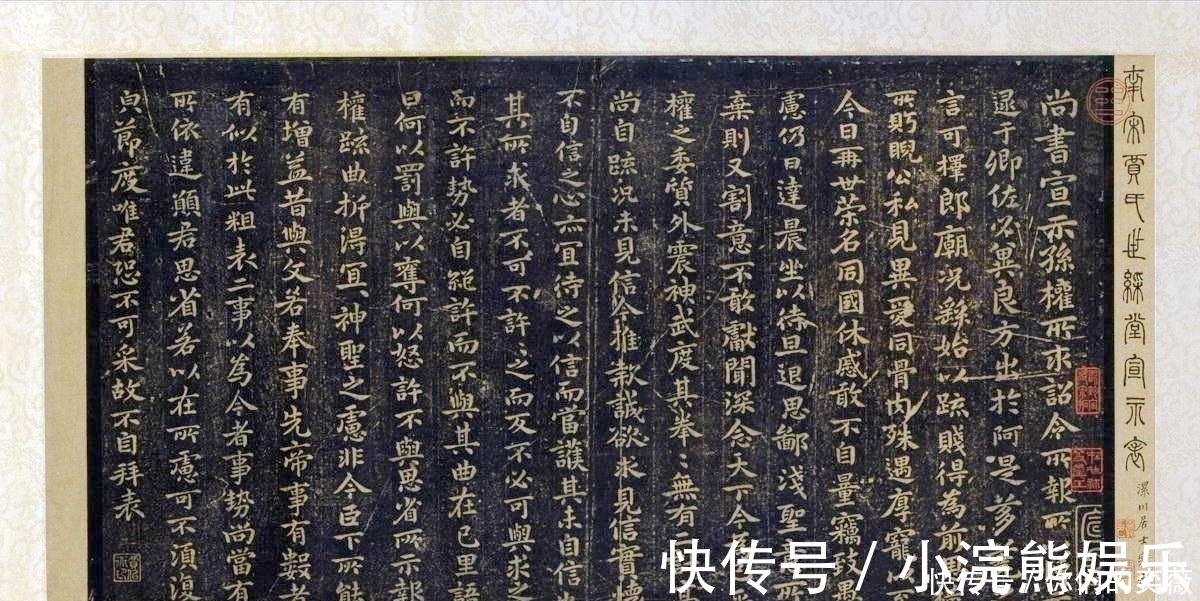 南宋賈氏世綵堂宣示表
尚書宣示孫權所求詔令所報所
逮于卿佐必冀良方出於阿是芻
言可擇郎廟況繇始以疏賤得為前
所眄睨公私見異愛同骨肉殊遇厚寵以
今日再世榮名同國休慼敢不自量竊致愚
慮仍日達晨坐以待旦退思鄙淺聖
棄則又割意不敢獻聞深念天下今
權之委質外震神武度其拳〻無有
尚自疏況未見信今推款誠欲求見信實懷
不自信之心亦宜待之以信而當護其未自信也
其所求者不可不許〻之而反不必可與求之
而不許勢必自絕許而不與其曲在己里語
曰何以罰與以奪何以怒許不與思省所示報
權疏曲折得宜〻神聖之慮非今臣下所能
有增益昔與文若奉事先帝事有數者
有似於此粗表二事以為今者事勢尚當有
所依違願君思省若以在所慮可不須復
白節度唯君恐不可采故不自拜表
快传号 / 小浣熊娱乐